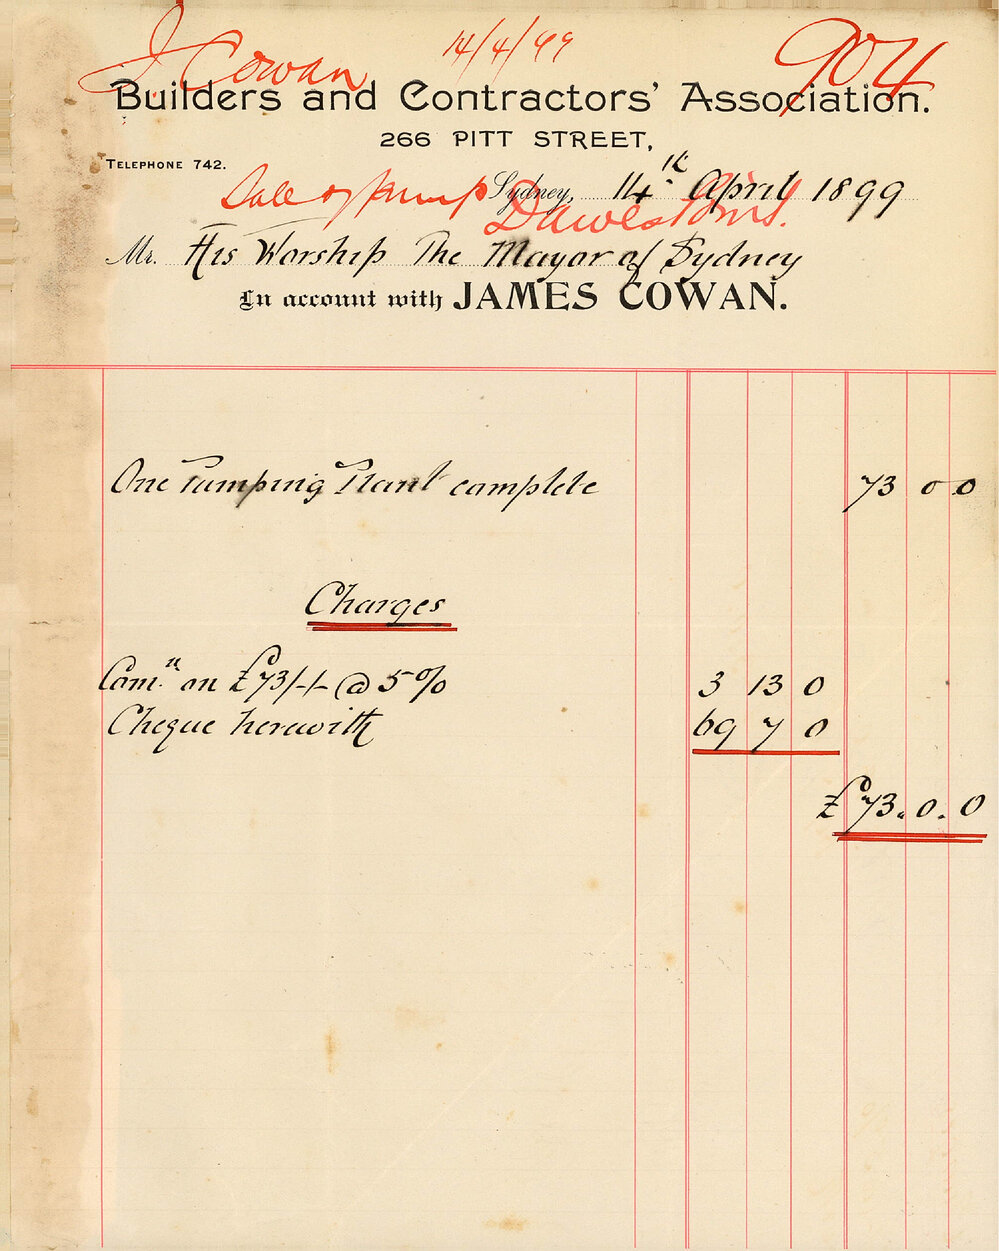 J Cowan 14/4/99 904
Builders and Contractors' Association.
266 PITT STREET,
TELEPHONE 742.
Sale of pump Sydney, 14th April 1899
Dawes Point.
Mr. His Worship The Mayor of Sydney
In account with JAMES COWAN.
One Pumping Plant complete 73 0 0
Charges
Comn. on £73/-/- @ 5% 3 13 0
Cheque herewith 69 7 0
£73.0.0